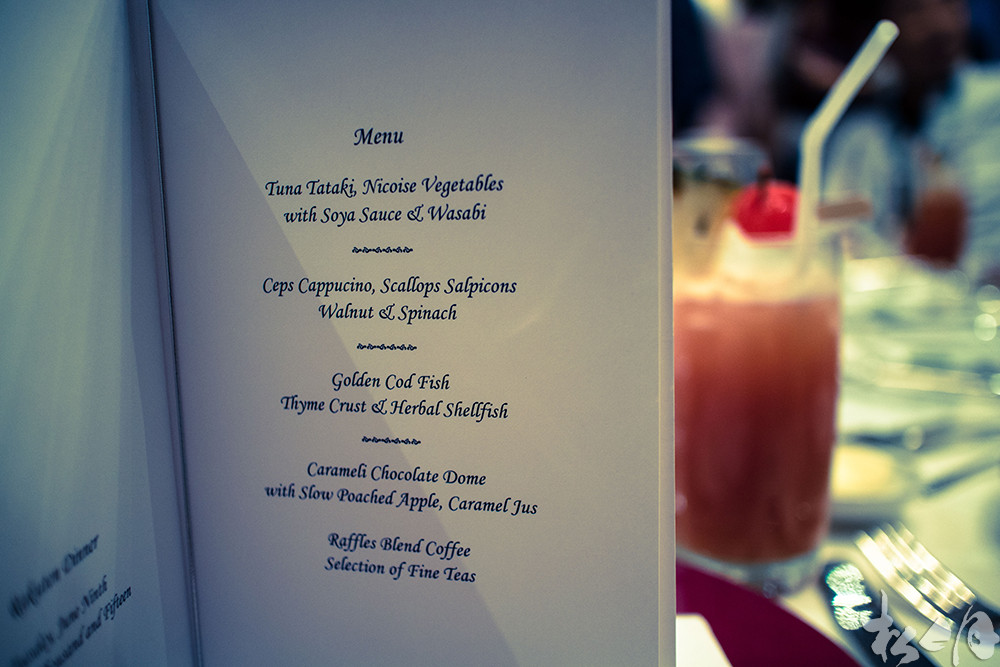 Menu
Tuna Tataki, Nicoise Vegetables
with Soya Sauce & Wasabi
Ceps Cappucino, Scallops Salpicons
Walnut & Spinach
Golden Cod Fish
Thyme Crust & Herbal Shellfish
Carameli Chocolate Dome
with Slow Poached Apple, Caramel Jus
Raffles Blend Coffee
Selection of Fine Teas
Dinner
June Ninth
and Fifteen